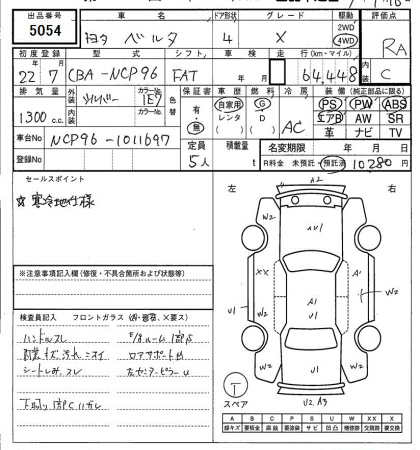 出品番号 車名 ドア形状 グレード 駆動 評価点
5054 トヨタ ベルタ 4 X 2WD 4WD RA
初度登録 型式 シフト 車検 走行(km・マイル) 内装
22年7月 CBA-NCP96 FAT 年 月 64,448 C
排気量 外装色 カラーNo. 内装色 カラーNo. 色替 保証書 車歴 燃料 冷房 装備(純正部品に限る)
1300c.c. シルバー 1E7 有・無 自家用 レンタ ( ) G D ( ) AC PS PW ABS
エアB AW SR
革 ナビ TV
車台No NCP96-1011697
登録No. 定員 積載量 名変期限 年 月 日
5人 t R料金 未預託・預託済 10280円
セールスポイント
☆寒冷地仕様
左 右
A2
W2 W2
AU1
XX A1 W2
U1 A1
U1
W2 W2
U2 A3
※注意事項記入欄(修復・不具合箇所および状態等)
検査員記入 フロントガラス
ハンドルスレ
内装キズ汚れ
シートしみ、スレ
下回り
コアサポートM
左センターピラーU
T
スペア
A B C P S U W X XX
線キズ 要板金 腐蝕 要塗装 サビ 凹凸 補修跡 交換跡 要交換